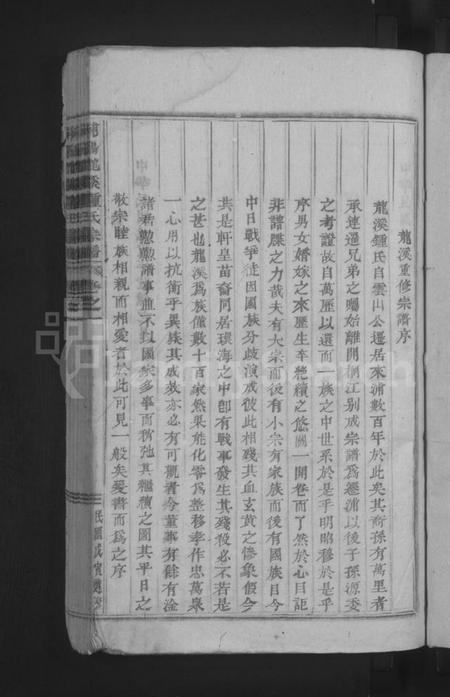 龍溪重修宗譜序
龍溪鍾氏自雲山公遷居來浦數百年於此矣其裔孫有萬里者
承連過兄弟之囑始離開桐江別成宗譜爲遷浦以後子孫源委
之考證故自萬歷以還而一族之中世系於是乎明昭穆於是乎
序男女婚嫁之來歷生卒兆穴之悠關一開卷而了然於心目詎
非譜牒之力哉夫有大宗而後有小宗有家族而後有國族目今
中日戰爭雖因國族分歧演成彼此相殘其血玄黃之慘象假令
共是軒皇苗裔同居環海之中卽有戰事發生其殘殺必不若是
之甚也龍溪爲族僅數十百家然果能化零爲整移孝作忠萬衆
一心用以抗衡乎異族其成效亦必有可觀者今董事有餘有淦
諸君懃懃譜事並不以國家多事而稍弛其繼續之圖其平日之
敬宗睦族相親而相愛者於此可見一般矣爰書而爲之序
龍溪鍾氏宗譜
民國戊寅